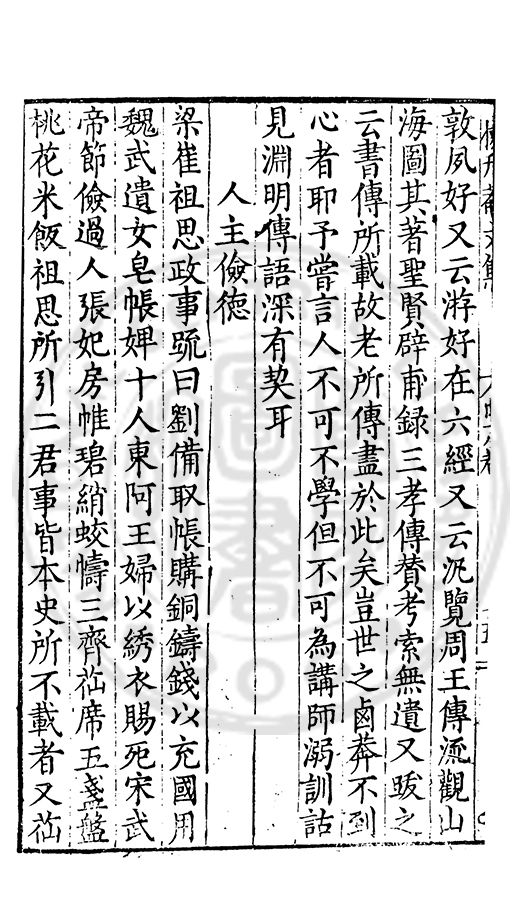 敦夙好又云游好在六經又云汎覽周王傳流觀山
海圖其著聖賢群甫錄三孝傳賛考索無遺又跋之
云書傳所載故老所傳盡於此矣豈世之鹵莽不到
心者耶予嘗言人不可不學但不可為講師溺訓詁
見淵明傳語深有契耳
人主儉德
梁崔祖思政事䟽曰劉備取帳購銅鑄錢以充國用
魏武遺女皂帳婢十人東阿王婦以綉衣賜死宋武
帝節儉過人張妃房帷碧綃蛟幬三齊苮席五盞盤
桃花米飯祖思所引二君事皆本史所不載者又苮